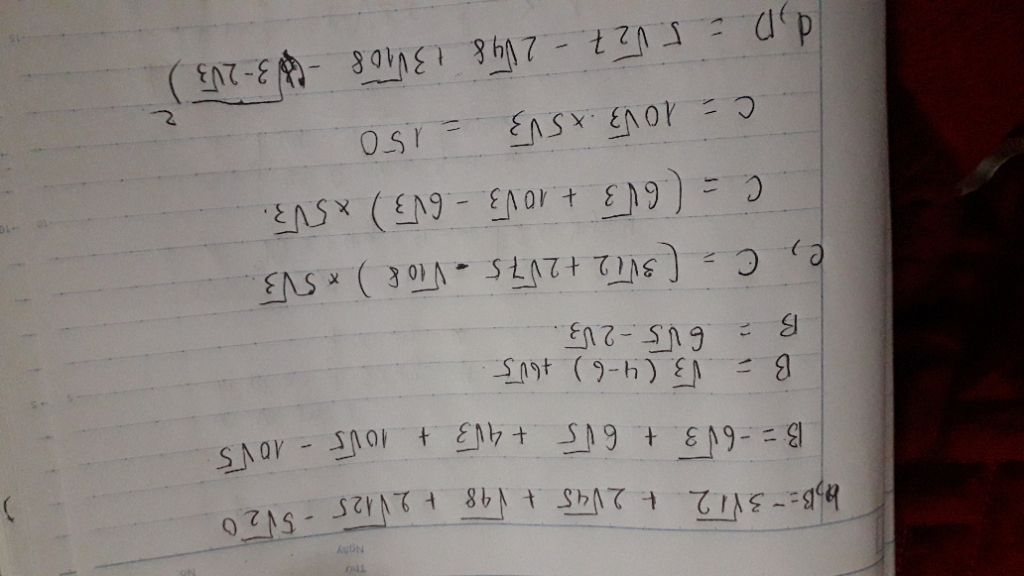 Thứ
Ngày
No.
b, B = -3√12 + 2√45 + √48 + 2√125 - 5√20
B = -6√3 + 6√5 + 4√3 + 10√5 - 10√5
B = √3 (4-6) + 6√5
B = 6√5 - 2√3.
c, C = (3√12 + 2√75 - √108) × 5√3.
C = (6√3 + 10√3 - 6√3) × 5√3.
C = 10√3 × 5√3 = 150
d, D = 5√27 - 2√48 + 3√108 - √(3-2√3)²